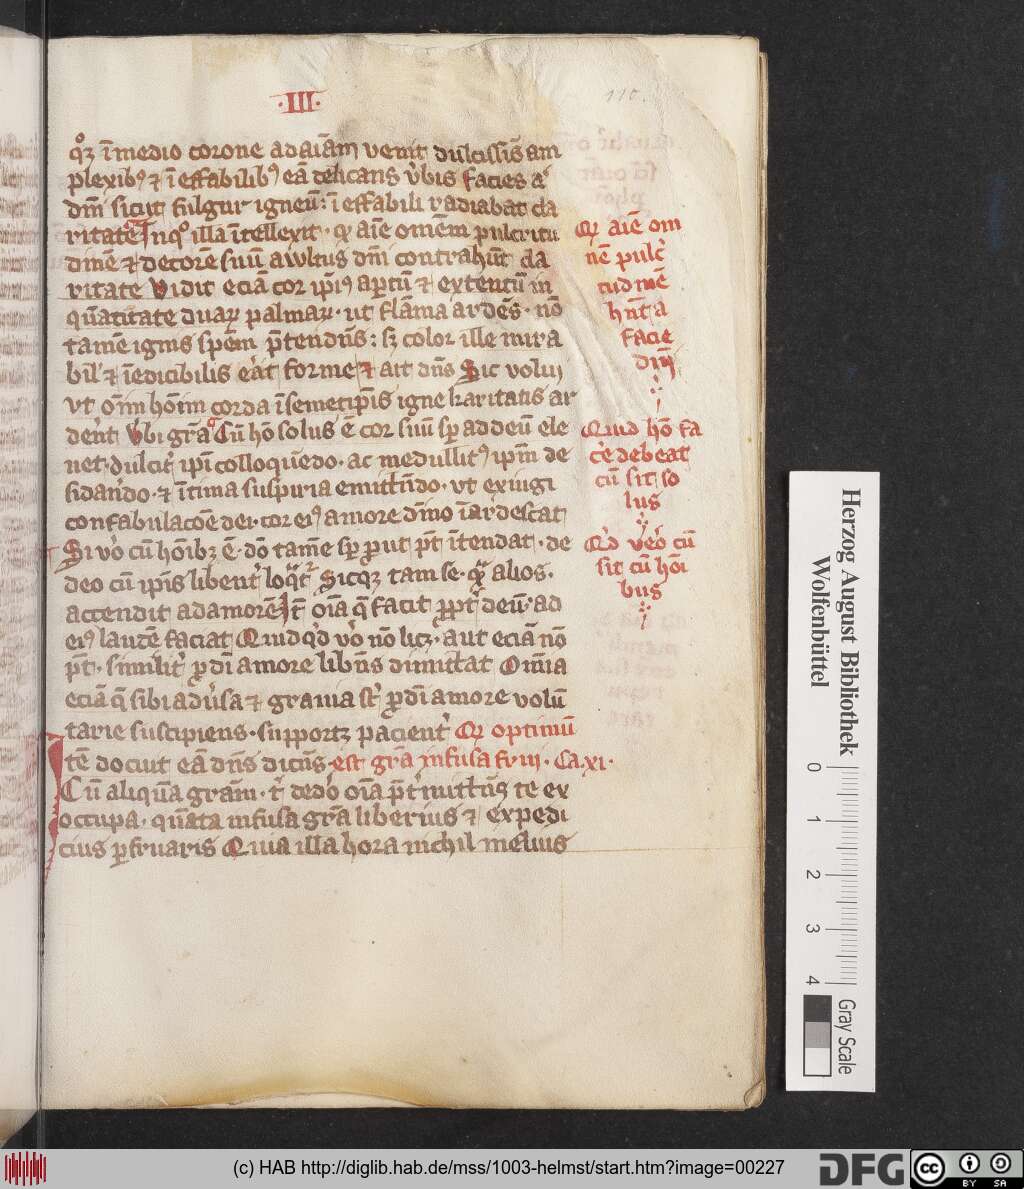 ·III·
110.
qꝫ ī medio corone ad aīam venit dulcissīs am
plexibꝰ ⁊ īeffabilibꝰ eā delicans v̄bis facies
dnī sicut fulgur igneū: īeffabili radiabat cla
ritate In qͦ illa ītellexit · qꝛ aīe omēm pulcritu
dinē ⁊ decorē suū a vultus dnī contrahūt cla
ritate Vidit eciā cor ipīꝰ aꝑtū ⁊ extentū in
quātitate duaꝝ palmaꝝ · ut flāma ardēs · nō
tamē ignis spēm p̄tendēs: sꝫ color ille mira
bil' ⁊ īedicibilis erat forme ⁊ ait dn̄s Sic volui
vt oīm hoīm corda ī semetipīs igne karitatis ar
derēt Vbi grā Cū hō solus ē cor suū sꝑ ad deū ele
uet · dulcit' ipī colloquēdo · ac medullitꝰ ipm̄ de
sidando · ⁊ ītima suspiria emittēdo · vt ex iugi
confabulacōe dei · cor eiꝰ amore dīno īardescat
Si vō cū hoībꝫ ē · dō tamē sꝑ ꝓut pt̄ ītendat · de
deo cū ipīs libent' loqͣtr Sicqꝫ tam se · qͣ alios ·
accendit ad amorē It̄ oīa q̄ facit ꝓpt' deū · ad
eiꝰ laudē faciat Quidqͥd vō nō licꝫ · aut eciā nō
pt̄ · similit' ꝓ dī amore libēs dimittat Omīa
eciā q̄ sibi adūsa ⁊ grauia st̄ ꝓ dī amore volū
tarie suscipiens · supportꝫ pacient' Qꝛ optimū
tē docuit eā dn̄s dicēs · est grā infusa frui · Ca · xi ·
Cū aliquā grām · t̄ dedō oīa p̄t'mittēs te ex
occupa · quata infusa grā liberius ⁊ expedi
cius ꝑfruaris Quia illa hora nichil melius
Qꝛ aīe om
nē pulc'
tudinē
hn̄t a
facie
dnī
Quid hō fa
c'e debeat
cū sit so
lus
Qͥd vero cū
sit cū hoī
bus
Herzog August Bibliothek
Wolfenbüttel
0 1 2 3 4
Gray Scale
(c) HAB http://diglib.hab.de/mss/1003-helmst/start.htm?image=00227
DFG
cc
BY SA